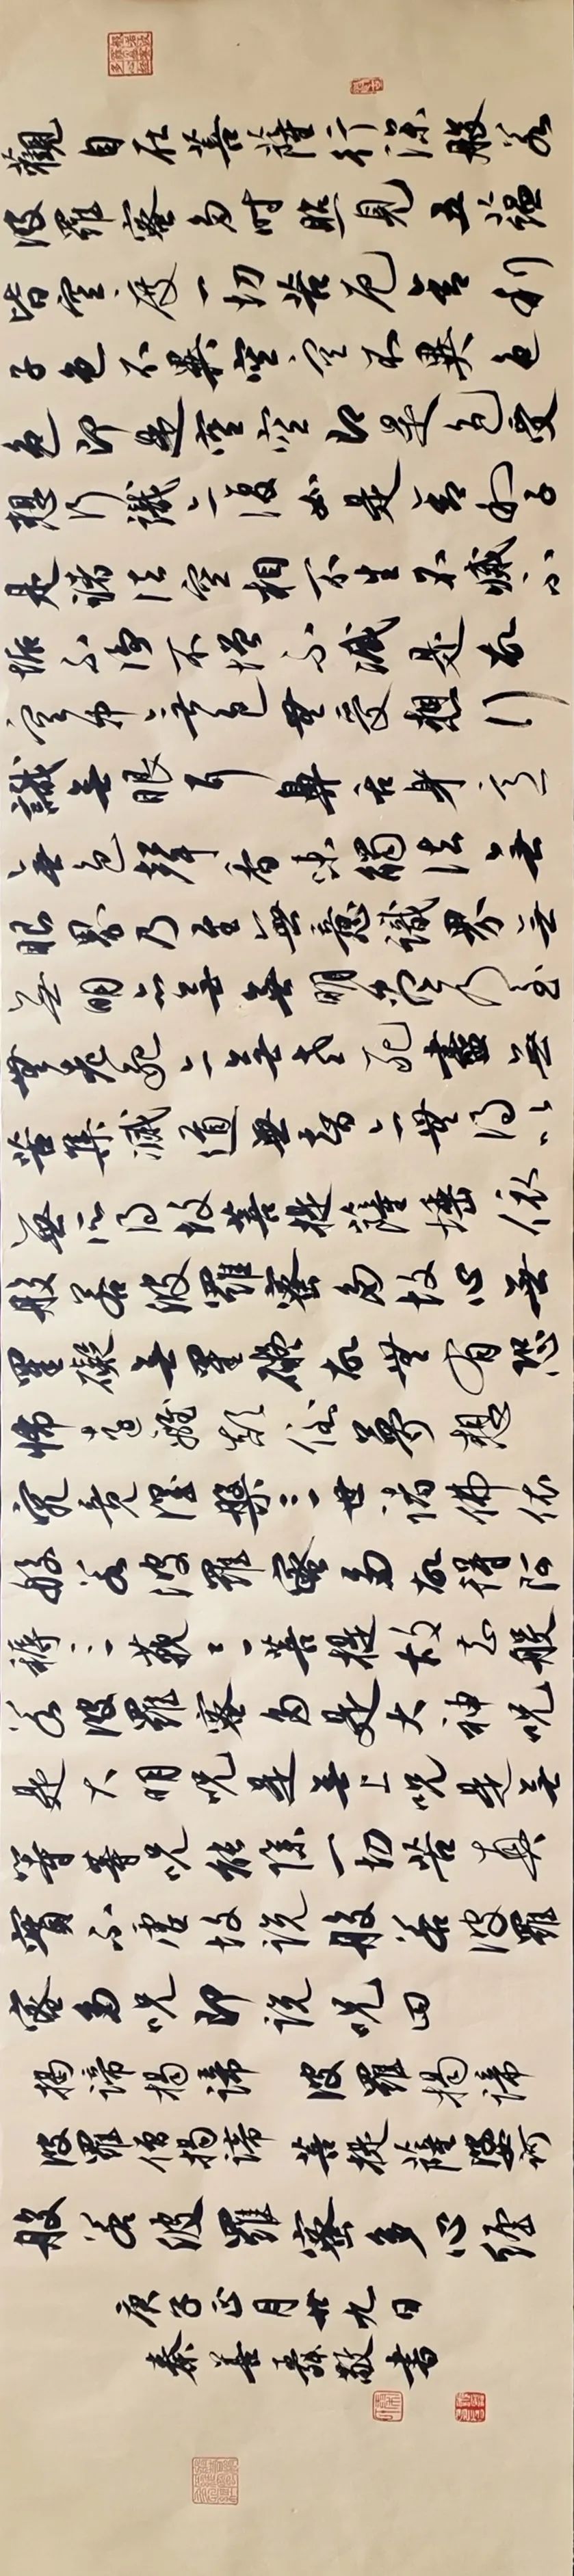 觀自在菩薩行深般若
波羅蜜多時照見五蘊
皆空度一切苦厄舍利
子色不異空空不異色
色即是空空即是色受
想行識亦復如是舍利子
是諸法空相不生不滅不
垢不淨不增不減是故
空中無色無受想行
識無眼耳鼻舌身意
無色聲香味觸法無
眼界乃至無意識界無
無明亦無無明盡乃至
無老死亦無老死盡無
苦集滅道無智亦無得以
無所得故菩提薩埵依
般若波羅蜜多故心無
罣礙無罣礙故無有恐
怖遠離顛倒夢想
究竟涅槃三世諸佛依
般若波羅蜜多故得阿
耨三藐三菩提故知般
若波羅蜜多是大神咒
是大明咒是無上咒是無
等等咒能除一切苦真
實不虛故說般若波羅
蜜多咒即說咒曰
揭諦揭諦 波羅揭諦
波羅僧揭諦 菩提薩婆訶
般若波羅蜜多心經
庚子正月廿九日
秦善敬書